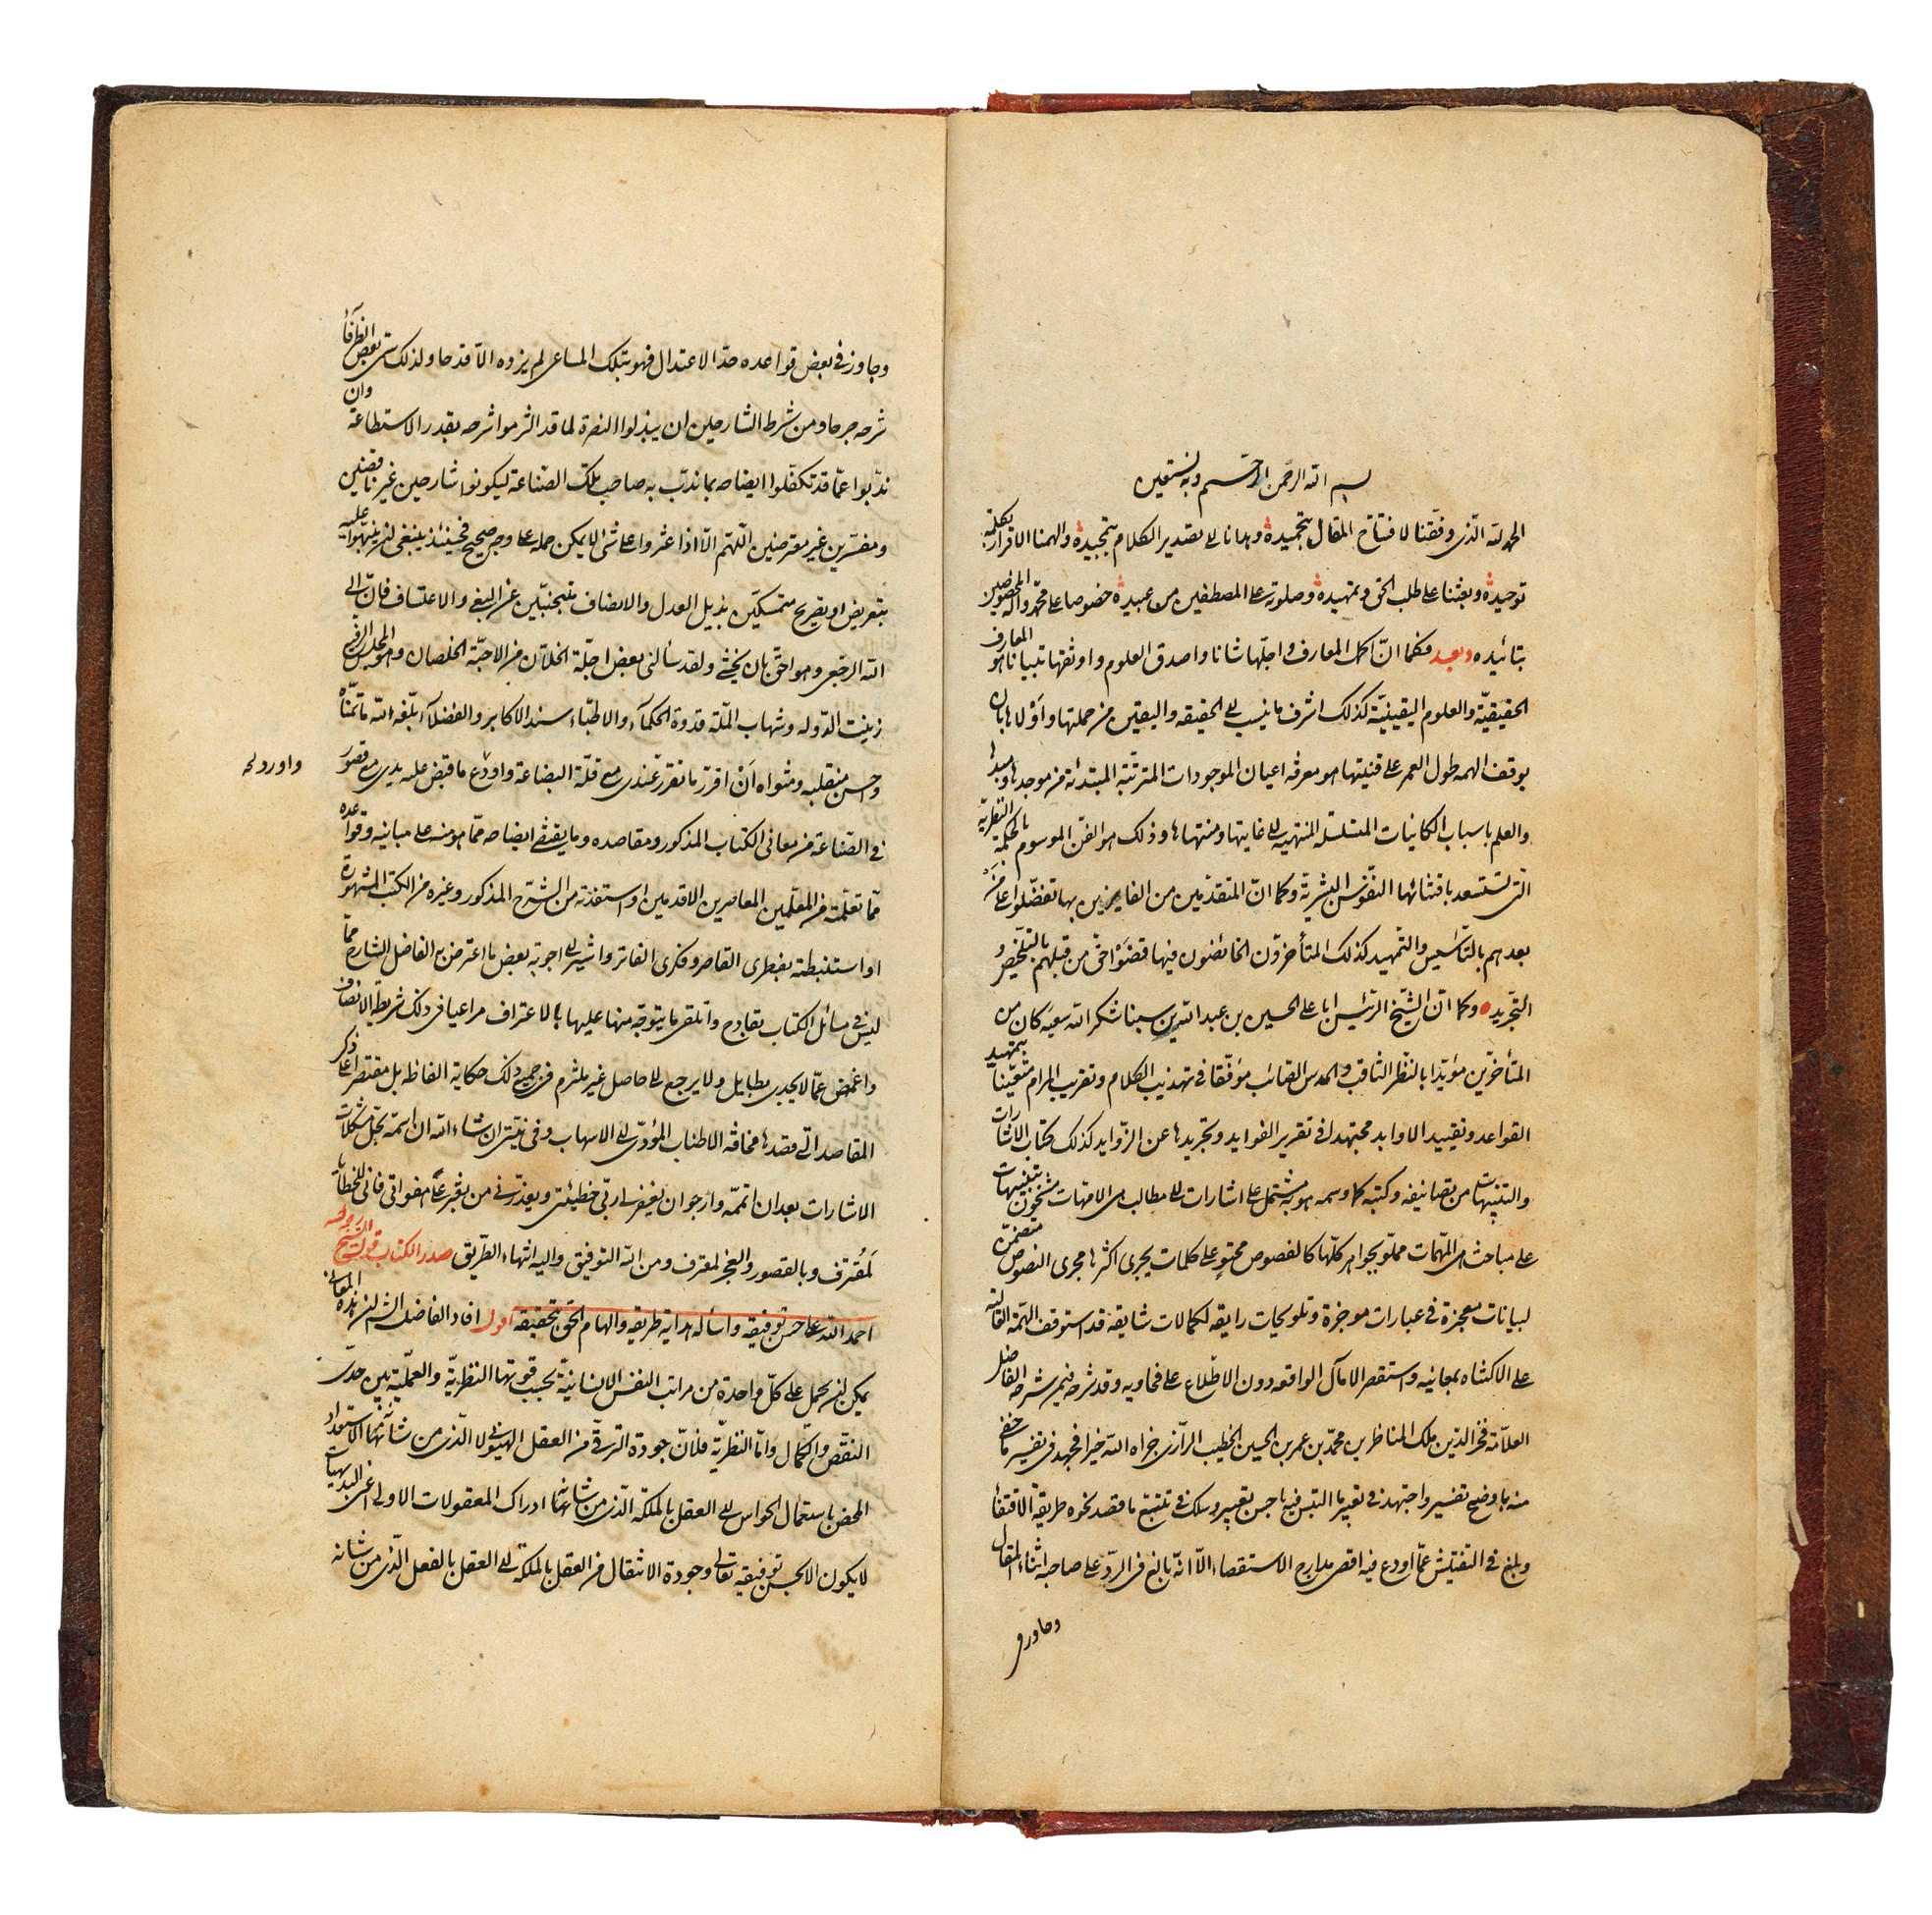 بسم الله الرحمن الرحيم وبه نستعين
الحمد لله الذى وفقنا لافتتاح المقال بتحميده وهدانا الى تصدير الكلام بتمجيده والهمنا الاقرار بكلمة
توحيده وبعثنا على طلب الحق وتمهيده وصلوته على المصطفين من عبيده خصوصا على محمد واله المخصوصين
بتائيده وبعد فكما ان اكمل المعارف واجلها شانا واصدق العلوم واوثقها تبيانا هو المعارف
الحقيقية والعلوم اليقينية كذلك اشرف ما ينسب الى الحقيقه واليقين من جملتها واولاها بان
يوقف الهمه طول العمر على قنيتها هو معرفه اعيان الموجودات المترتبة المبتدئة من موجدها ومبدئها
والعلم باسباب الكاينات المتسلسله المنتهيه الى غايتها ومنتهاها وذلك هو الفن الموسوم بالحكمة النظرية
التى تستعد باقتنائها النفوس البشرية وكما ان المتقدمين من الفايزين بها تفضلوا على من
بعدهم بالتاسيس والتمهيد كذلك المتأخرون الخائضون فيها قضوا حق من قبلهم بالتلخيص و
التجريد وكما ان الشيخ الرئيس ابا على الحسين بن عبد الله بن سينا شكر الله سعيه كان من
المتأخرين مؤيدا بالنظر الثاقب والحدس الصائب موفقا فى تهذيب الكلام وتقريب المرام معتنيا بتمهيد
القواعد وتقييد الاوابد مجتهدا فى تقرير الفوايد وتجريدها عن الزوايد كذلك كتاب الاشارات
والتنبيهات من تصانيفه وكتبه كما وسمه هو به مشتمل على اشارات الى مطالب هى الامهات مشحون بتنبيهات
على مباحث هى المهمات مملو بجواهر كلها كالفصوص محتو على كلمات يجرى اكثرها مجرى النصوص متضمن
لبيانات معجزة فى عبارات موجزة وتلويحات رايقه لكمالات شايقه قد استوقف الهمة العالية
على الاكتناه بمعانيه واستقصر الامال الوافيه دون الاطلاع على فحاويه وقد شرحه فيمن شرحه الفاضل
العلامة فخر الدين ملك المناظرين محمد بن عمر بن الحسين الخطيب الرازى جزاه الله خيرا فجهد فى تفسير ما خفى
منه باوضح تفسير واجتهد فى تعبير ما التبس فيه باحسن تعبير وسلك فى تتبع ما قصد نحوه طريقة الاقتفاء
وبلغ فى التفتيش عما اودع فيه اقصى مدارج الاستقصاء الا انه بالغ فى الرد على صاحبه اثناء المقال
وجاوز فى
وجاوز فى بعض قواعده حد الاعتدال فهو بتلك المساعى لم يزده الا قدحا ولذلك سمى بعض الظرفاء
شرحه جرحا ومن شرط الشارحين ان يبذلوا النصرة لما قد التزموا شرحه بقدر الاستطاعة وان
يذبوا عما قد تكفلوا ايضاحه بما يذب به صاحب تلك الصناعة ليكونوا شارحين غير ناقضين
ومفسرين غير معترضين اللهم الا اذا عثروا على شئ لا يمكن حمله على وجه صحيح فحينئذ ينبغى ان ينبهوا عليه
بتعريض او تصريح متمسكين بذيل العدل والانصاف متجنبين عن البغى والاعتساف فان الى
الله الرجعى وهو احق بان يخشى ولقد سألنى بعض اجلة الخلان من الاحبة الخلصان وهو المجلس الرفيع
زينت الدوله وشهاب الملة قدوة الحكماء والاطباء سند الاكابر والفضلاء بلغه الله ما يتمناه
وحسن منقلبه ومثواه ان اقرر ما تقرر عندى مع قلة البضاعة واودع ما قبض عليه يدى مع قصور
فى الصناعة من معانى الكتاب المذكور ومقاصده وما يقتضى ايضاحه مما هو منه على مبانيه وقواعده
مما تعلمته من المعلمين المعاصرين الاقدمين او استفدته من الشرح المذكور وغيره من الكتب المشهورة
او استنبطته بفطرى القاصر وفكرى الفاتر واشير الى اجوبة بعض ما اعترض به الفاضل الشارح مما
ليس فى مسائل الكتاب بقادح واتلقى ما يتوجه منها عليها بالاعتراف مراعيا فى ذلك شريطة الانصاف
واغمض عما لا يجدى بطايل ولا يرجع الى حاصل غير ملتزم فى جميع ذلك حكاية الفاظه بل مقتصرا على ذكر
المقاصد التى قصدها مخافة الاطناب المؤدى الى الاسهاب وفى نيتى ان شاء الله ان اسمه بحل مشكلات
الاشارات بعد ان اتمه وارجو ان يغفر لى ربى خطيئتى ويعذرنى من يعثر على هفواتى فانى للخطايا
لمقترف وبالقصور والعجز لمعترف ومن الله التوفيق واليه انتهاء الطريق صدر الكتاب قول الشيخ
احمد الله على حسن توفيقه واسأله هداية طريقه والهام الحق بتحقيقه اقول افاد الفاضل الشارح ان هذه المعانى
يمكن ان يحمل على كل واحدة من مراتب النفس الانسانية بحسب قوتها النظرية والعملية بين حدى
النقص والكمال واما النظرية فلان جودة الترقى من العقل الهيولانى الذى من شأنها الاستعداد
المحض باستعمال الحواس الى العقل بالملكة الذى من شأنها ادراك المعقولات الاولى اعنى البديهيات
لا يكون الا بحسن توفيقه تعالى وجودة الانتقال من العقل بالملكة الى العقل بالفعل الذى من شانه